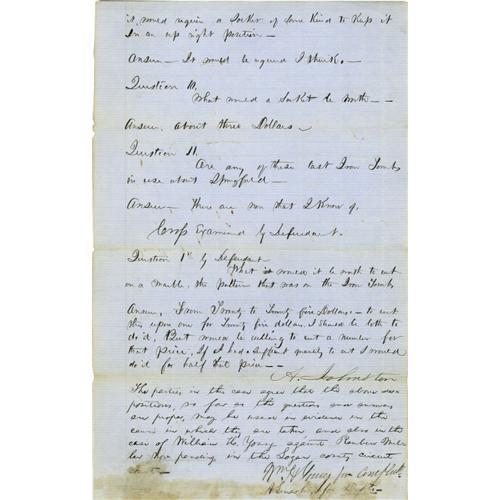 it, would require a Socket of some Kind to Keep it
in an up right position —
Answer — It would be required I think. —
Question 10.
What would a Socket be worth —
Answer, about three Dollars —
Question 11.
Are any of these cast Iron Tombs
in use about Springfield —
Answer — there are non that I Know of.
Cross Examined by Defendant.
Question 1st by Defendant
What would it be worth to cut
on a Marble, the pattern that was on the Iron Tomb
Answer, From Twenty to Twenty five Dollars — to cut
this upon one for Twenty five dollars I should be loth to
do it, But would be willing to cut a number for
that Price, If I had a sufficient quantity to cut I would
do it for half that price —
A. Johnston
The parties in this case agree that the above
positions, so far as the question and answers
are proper, may be used in evidence in the
cause in which they are taken and also in the
case of William H. Young against Reuben
now pending in the Logan county circuit
Wm H Young for